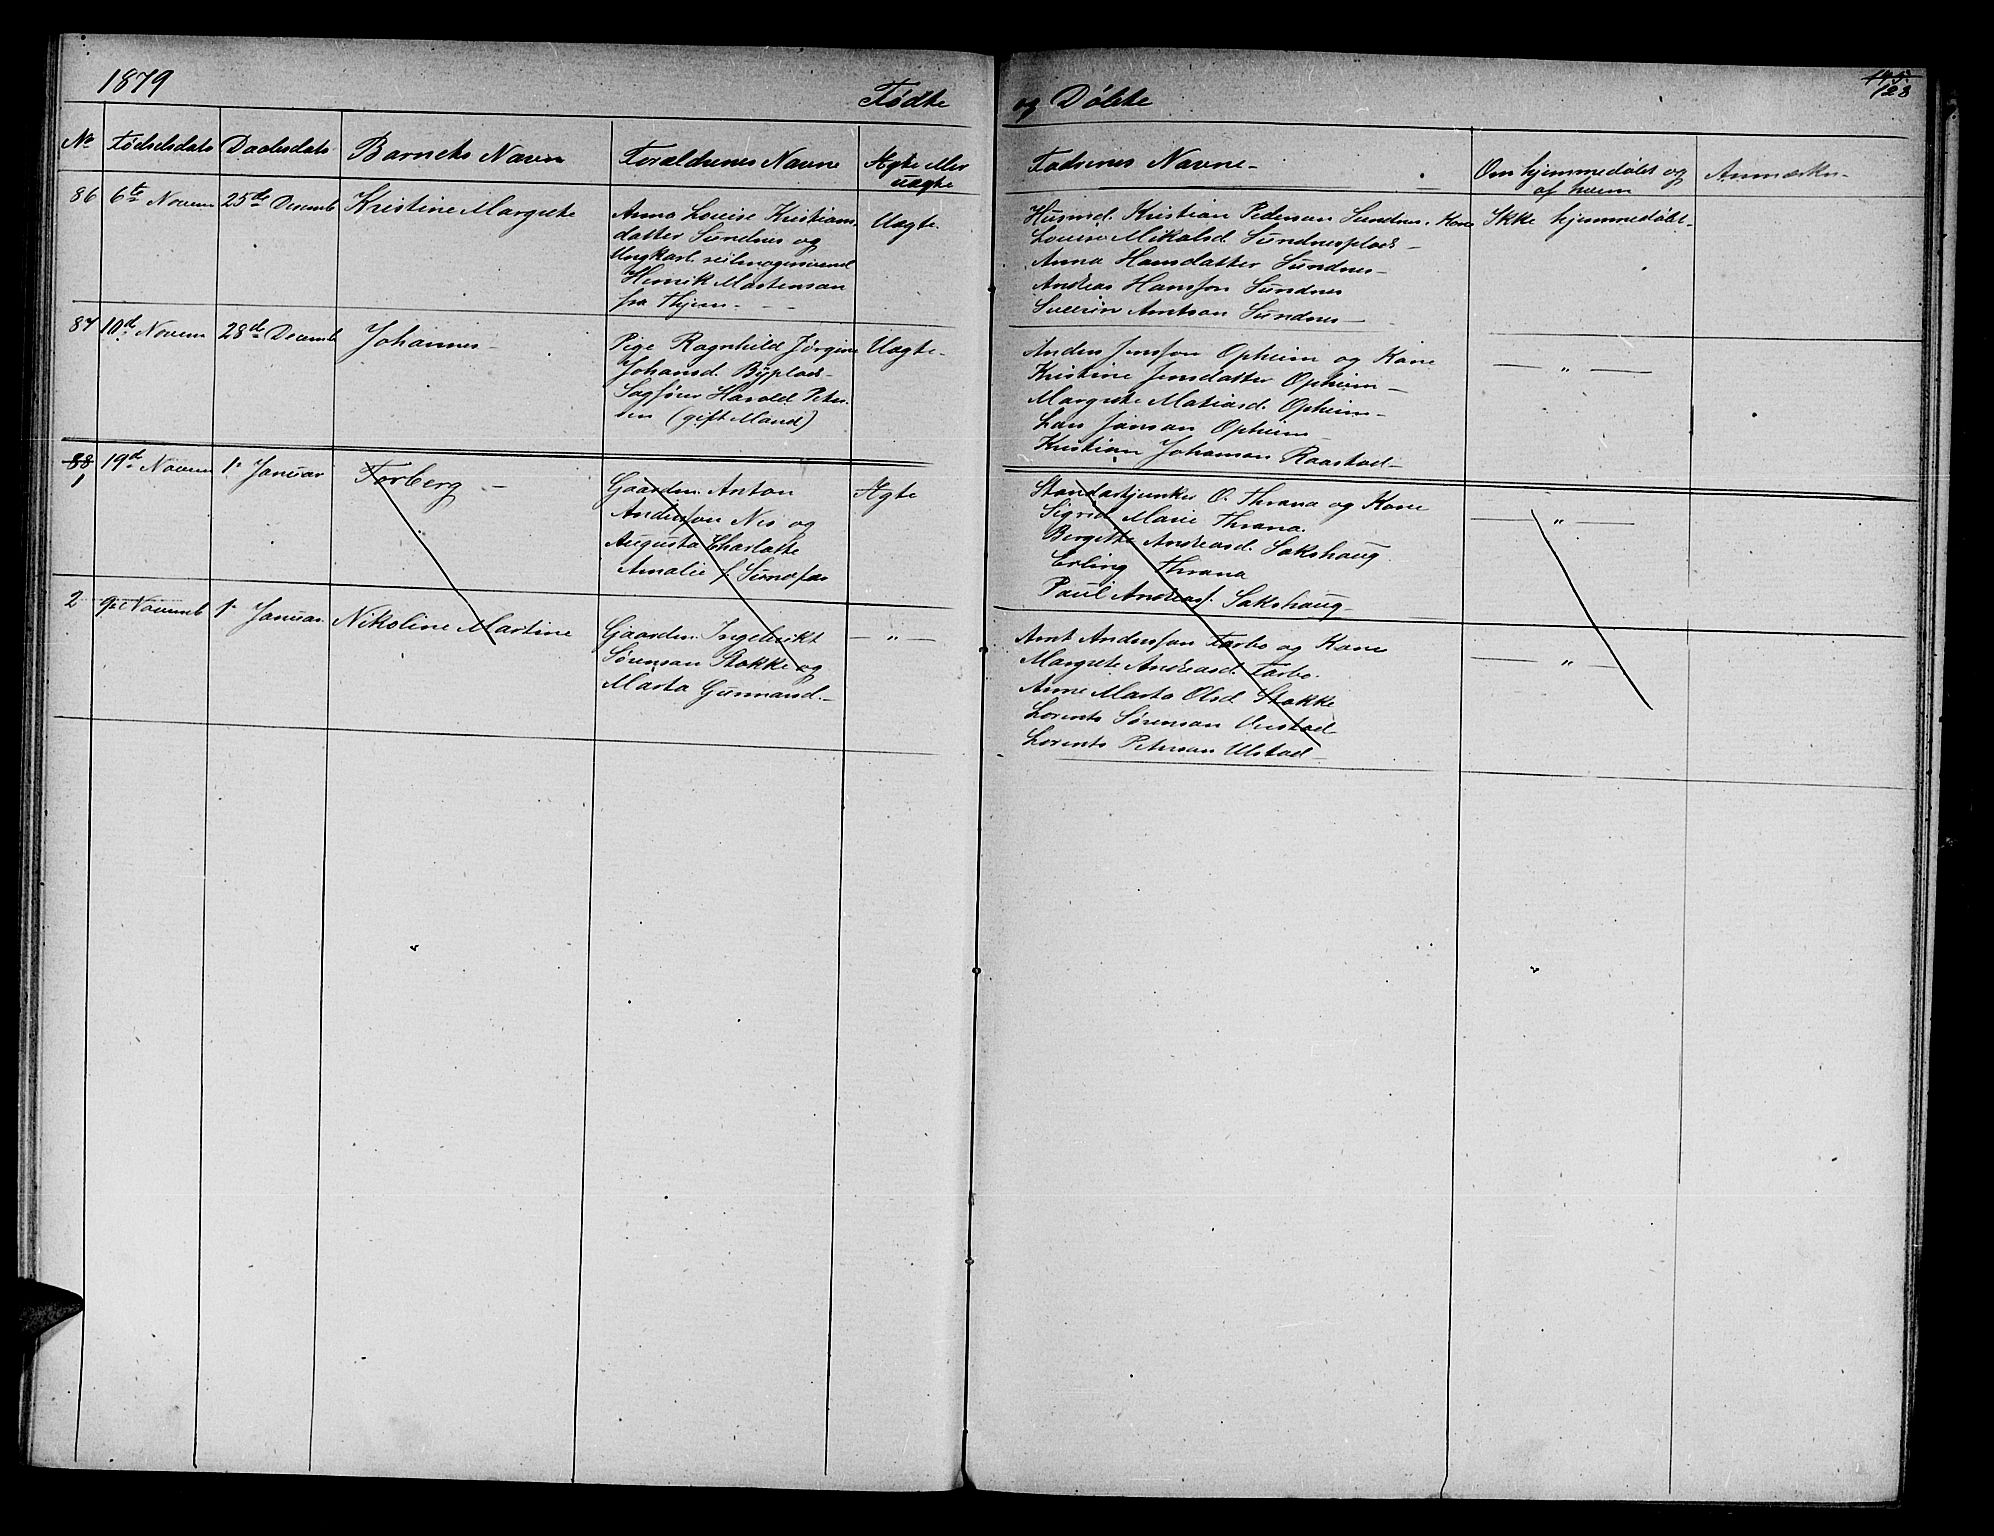 1879
Fødte
og Døbte
145.
128
No
Fødselsdato
Daabsdato
Barnets Navn
Forældrenes Navne
Ægte eller
uægte
Faderenes Navne
Om hjemmedøbt og
af hvem
Anmærkn.
86
6te Novem
25de Decemb
Kristine Margrete
Anna Louise Kristians
datter Sundnes og
Ungkarl
Henrik Martensan
fra
Uægte.
Husmd. Kristian Pedersan Sundnes. Kone
Louise Mikalsd. Sundnesplads
Anna Hansdatter Sundnes
Andreas Hanssøn Sundnes
Sverin Arntsan Sundnes
Ikke hjemmedøbt.
87
10de Novem
28de Decemb
Johannes
Pige Ragnhild Jørgine
Johansd. Byplads
Sagfører Harald Peter-
sen (gift Mand)
Uægte.
Anders Jenssøn Opheim og Kone
Kristine Jensdatter Opheim
Margrete Matiasd. Opheim
Lars Jansan Opheim
Kristian Johansan Raastad
— " —
88
1
19de Novem
1e Januar
Torberg
Gaardm. Anton
Anderssøn Nes og
Augusta Charlotte
Amalie f.
Ægte
Standartjunker O. Thrana og Kone
Sigrid Marie Thrana.
Bergitte Andreasd. Sakshaug
Erling Thrana
Paul Andreasf. Sakshaug
— " —
2
9e Novemb
1e Januar
Nikoline Martine
Gaardm. Ingebrikt
Sørensan Stokke og
Marta Gunnarsd.
— " —
Arnt Anderssøn Tarbo og Kone
Margrete Andreasd. Tarbo.
Anne Marta Olsd Stokke
Lorents Sørensan
Lorents Petersan Ulstad
— " —